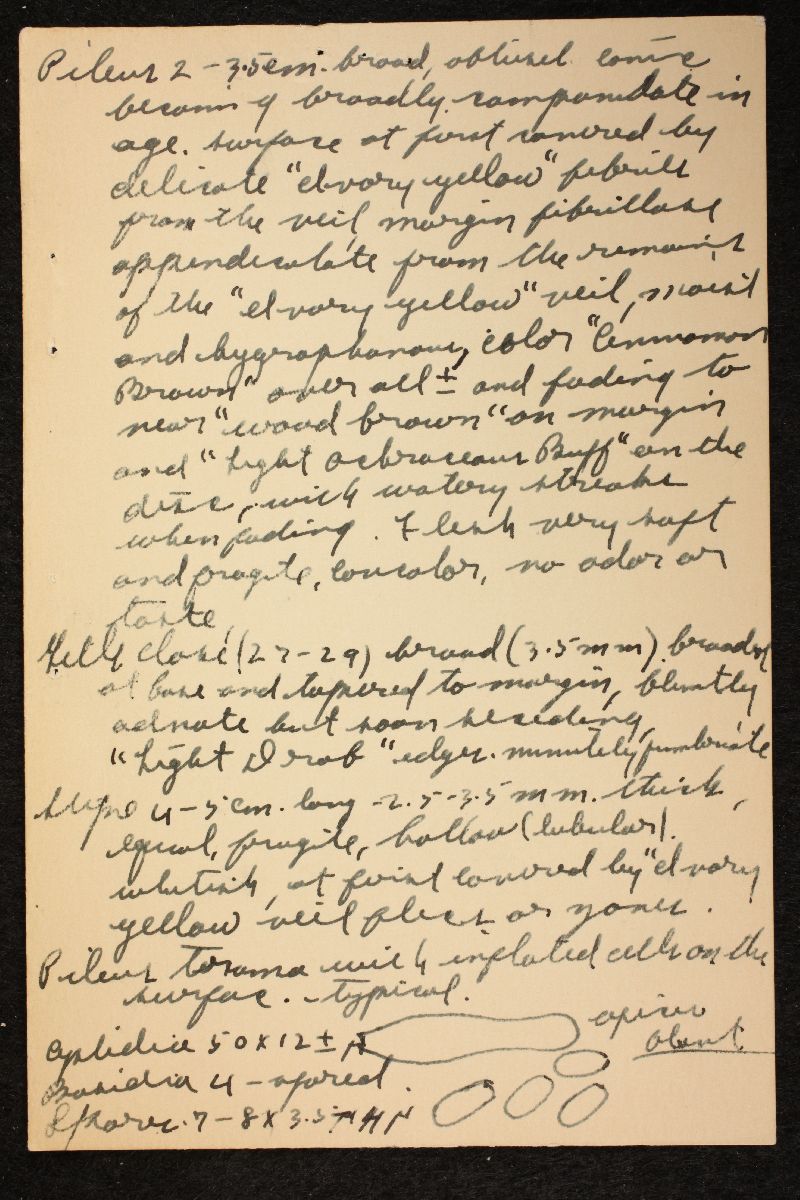 Pileus 2 - 3.5 cm. broad, obtusel conic
becoming broadly campanulate in
age. surface at first covered by
delicate "Ivory yellow" fibrils
from the veil, margin fibrillose
appendiculate from the remains
of the "Ivory yellow" veil, moist
and hygrophanous, color "Cinnamon
Brown" over all ± and fading to
near "wood brown" on margin
and "Light Ochraceous Buff" on the
disc, with watery streaks
when fading. Flesh very soft
and fragile, concolor, no odor or
taste.
Gills close (27-29) broad (3.5 mm) broadest
at base and tapered to margin, bluntly
adnate but soon seceding,
"Light Drab" edges minutely fimbriate
Stipe 4-5 cm. long - 2.5-3.5 mm. thick,
equal, fragile, hollow (tubular).
whitish, at first covered by "Ivory
yellow veil flecs or zones.
Pileus trama with inflated cells on the
surface. - typical.
cystidia 50 x 12 ± µ
apices
blunt
Basidia 4-spored.
Spores. 7-8 x 3.5